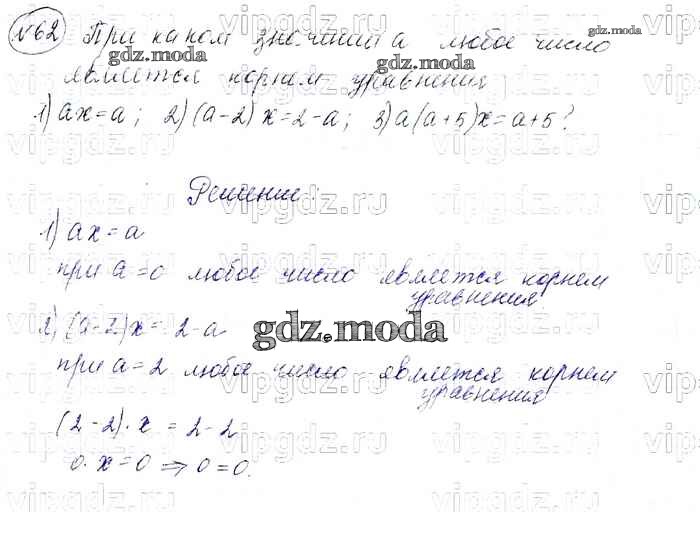 №62 При каком значении а любое число
является корнем уравнения
1) ax=a; 2) (a-2)x=2-a; 3) a(a+5)x=a+5?
Решение:
1) ax=a
при a=0 любое число является корнем
уравнения
2) (a-2)x=2-a
при a=2 любое число является корнем
уравнения
(2-2)·x=2-2
0·x=0 ⇒ 0=0.
gdz.moda
gdz.moda
gdz.moda
gdz.moda
gdz.moda
vipgdz.ru